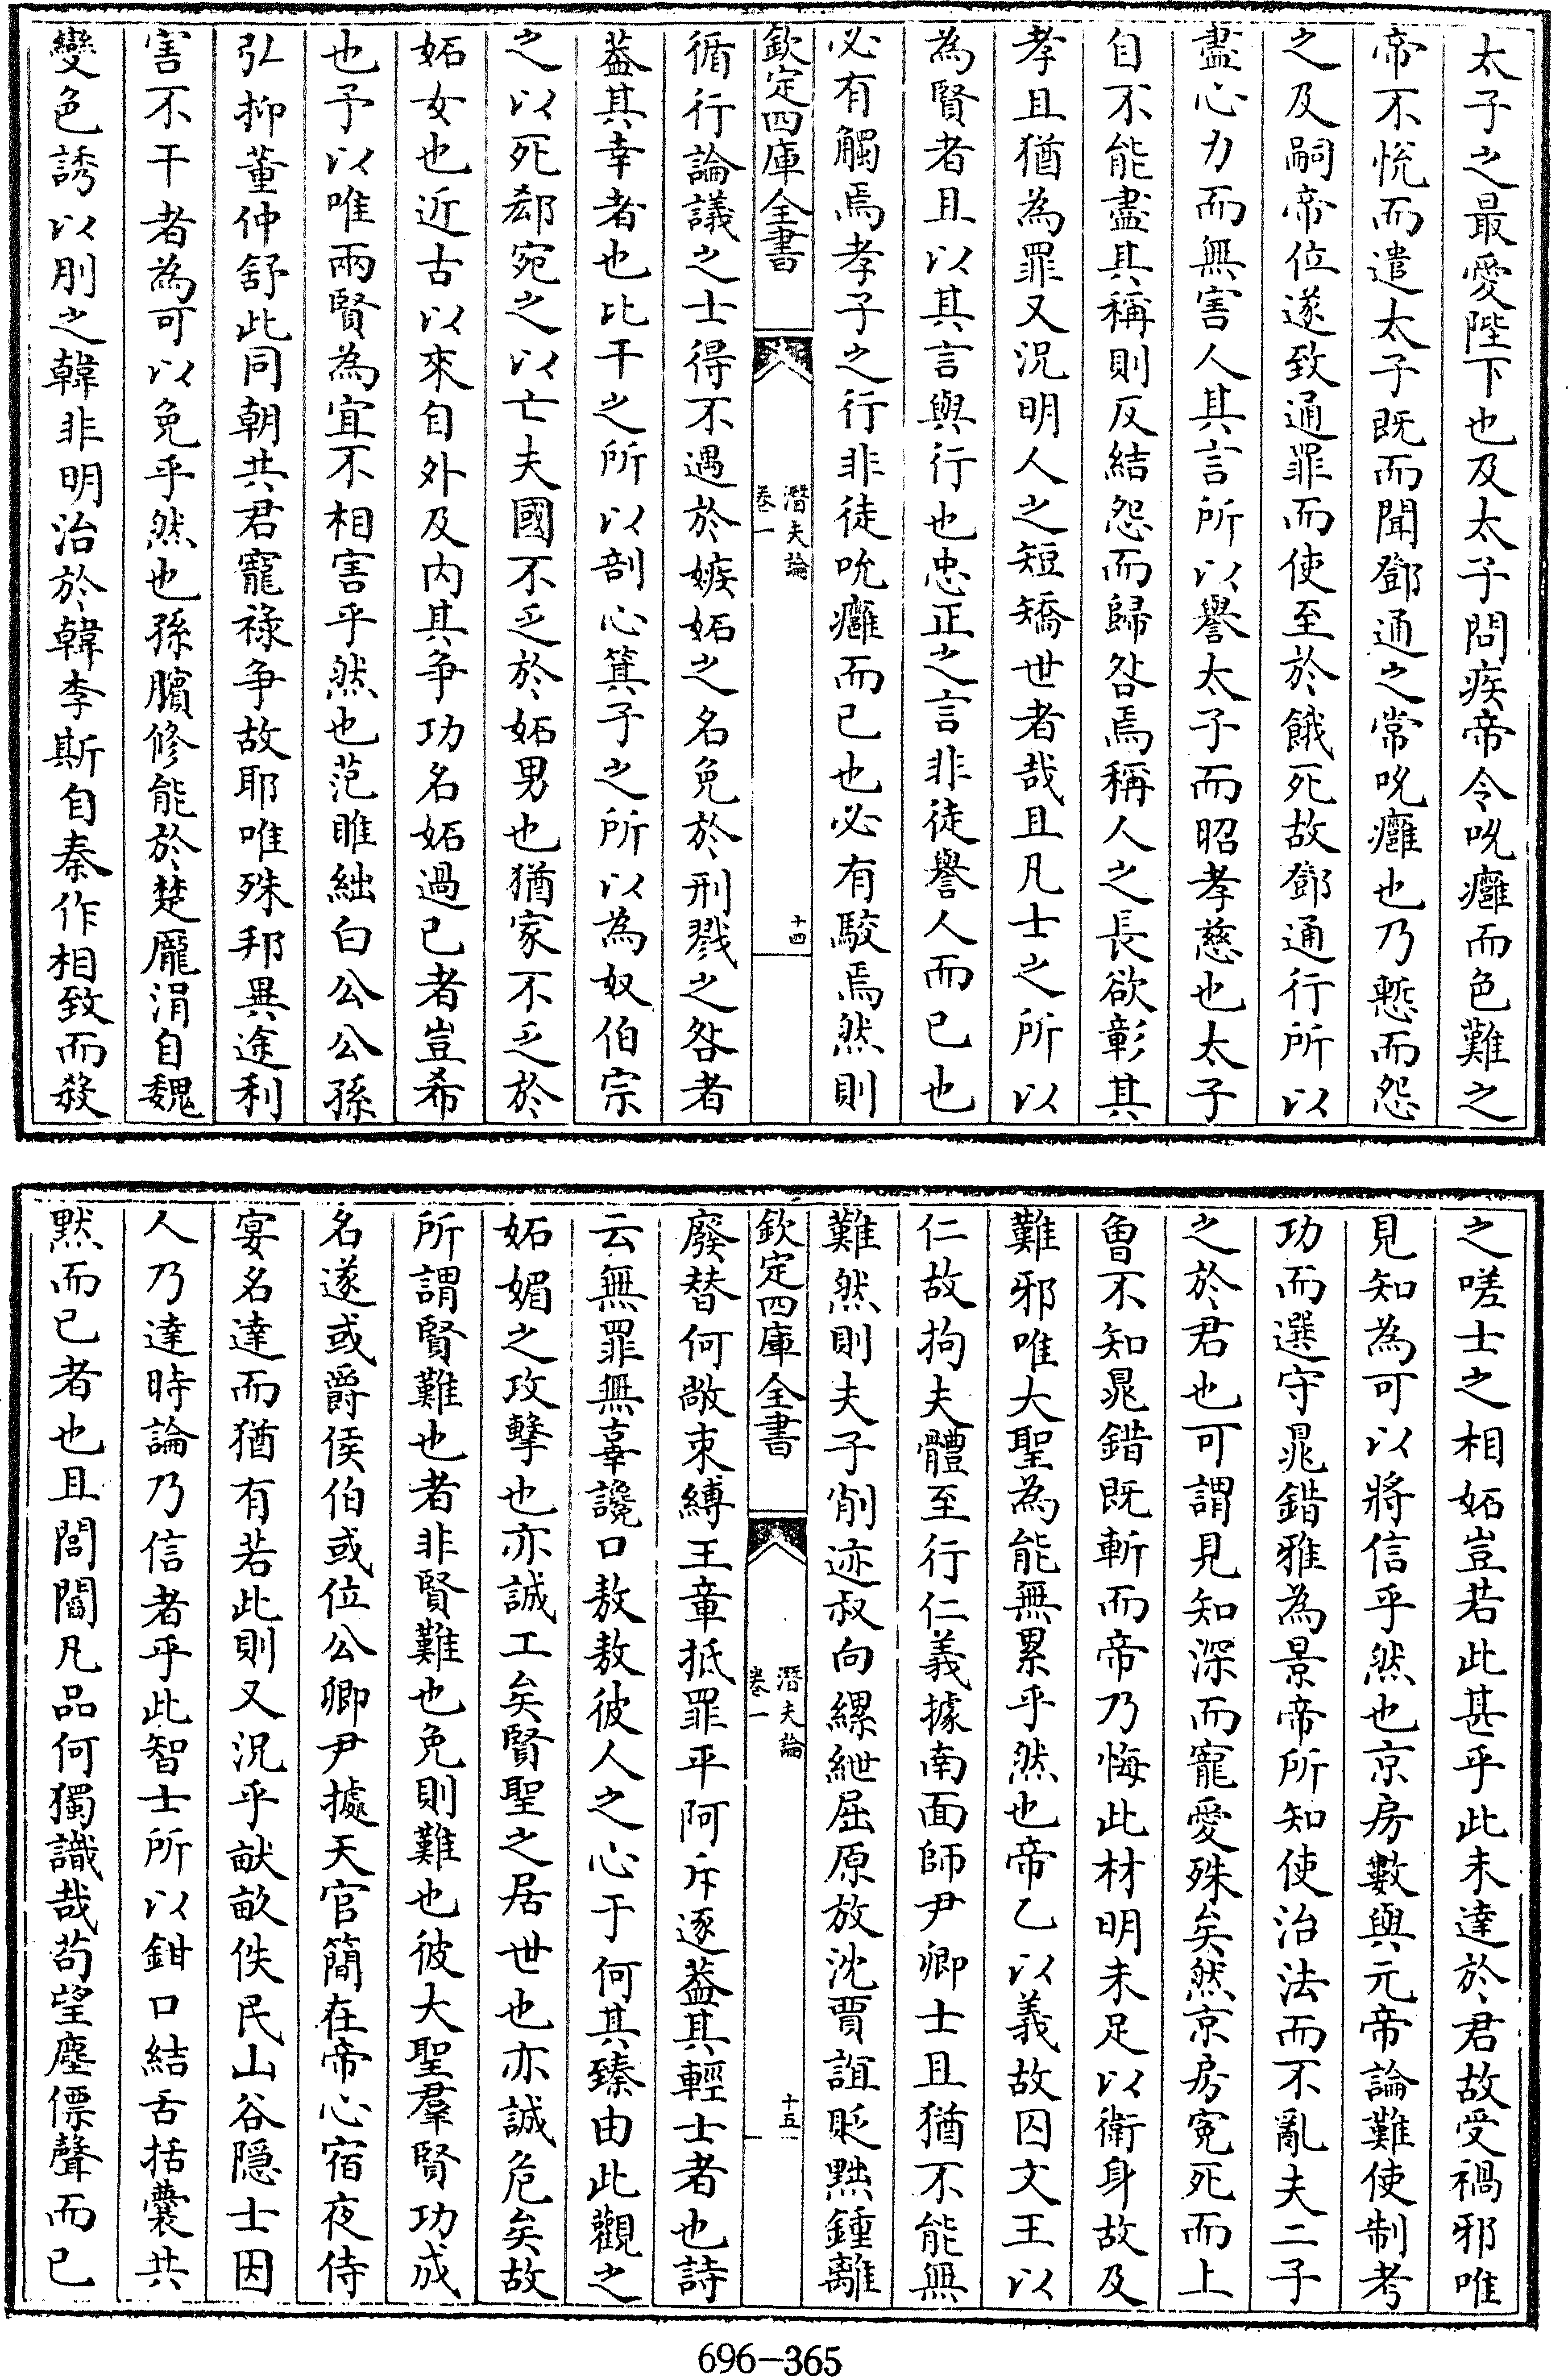 太子之最愛陛下也及太子問疾帝令吮癰而色難之
帝不悅而遣太子既而聞鄧通之常吮癰也乃慙而怨
之及嗣帝位遂致通罪而使至於餓死故鄧通行所以
盡心力而無害人其言所以譽太子而昭孝慈也太子
自不能盡其稱則反結怨而歸咎焉稱人之長欲彰其
孝且猶為罪又況明人之短矯世者哉且凡士之所以
為賢者且以其言與行也忠正之言非徒譽人而已也
必有觸焉孝子之行非徒吮癰而已也必有駮焉然則
欽定四庫全書
潛夫論
卷一
十四
循行論議之士得不遇於嫉妬之名免於刑戮之咎者
葢其幸者也比干之所以剖心箕子之所以為奴伯宗
之以死郄宛之以亡夫國不乏於妬男也猶家不乏於
妬女也近古以來自外及內其争功名妬過已者豈希
也予以唯兩賢為宜不相害乎然也范雎絀白公公孫
弘抑董仲舒此同朝共君寵祿争故耶唯殊邦異途利
害不干者為可以免乎然也孫臏修能於楚龐涓自魏
變色誘以刖之韓非明治於韓李斯自秦作相致而殺
之嗟士之相妬豈若此甚乎此未達於君故受禍邪唯
見知為可以將信乎然也京房數與元帝論難使制考
功而選守晁錯雅為景帝所知使治法而不亂夫二子
之於君也可謂見知深而寵愛殊矣然京房寃死而上
曾不知晁錯既斬而帝乃悔此材明未足以衛身故及
難邪唯大聖為能無累乎然也帝乙以義故囚文王以
仁故拘夫體至行仁義據南面師尹卿士且猶不能無
難然則夫子削迹叔向縲紲屈原放沈賈誼貶黜鍾離
欽定四庫全書
潛夫論
卷一
十五
廢替何敞束縛王章抵罪平阿斥逐葢其輕士者也詩
云無罪無辜讒口敖敖彼人之心于何其臻由此觀之
妬媢之攻擊也亦誠工矣賢聖之居世也亦誠危矣故
所謂賢難也者非賢難也免則難也彼大聖羣賢功成
名遂或爵侯伯或位公卿尹據天官簡在帝心宿夜侍
宴名達而猶有若此則又況乎畎畝佚民山谷隱士因
人乃達時論乃信者乎此智士所以鉗口結舌括囊共
黙而已者也且閭閻凡品何獨識哉苟望塵僄聲而已
696-365